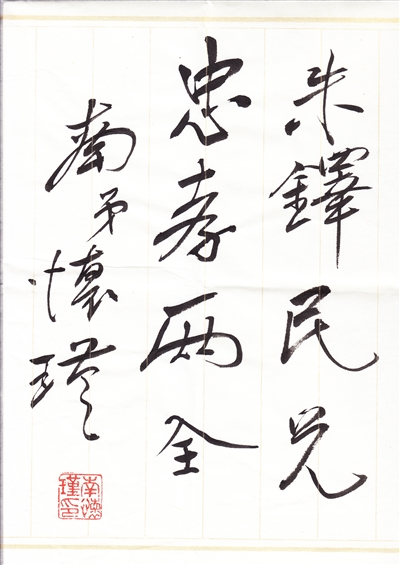 朱鐸民兄
忠孝两全
南弟懷瑾
南懷瑾印